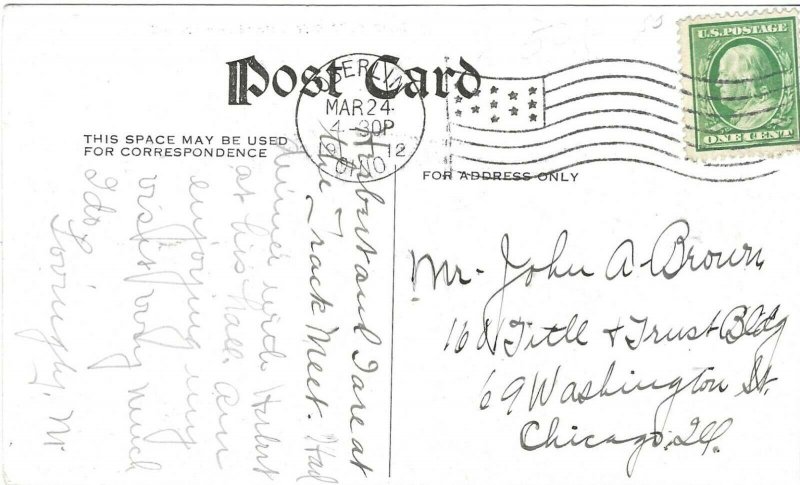 Post Card
THIS SPACE MAY BE USED
FOR CORRESPONDENCE
FOR ADDRESS ONLY
OBERLIN
MAR 24
4-30P
1912
OHIO
U.S. POSTAGE
ONE CENT
Herbert and I are at
the Track Meet. Had
dinner with Herbert
at his hall. Am
enjoying my
visit very much
I do
Lovingly, M
Mr. John A. Brown
Title & Trust Bldg
69 Washington St.
Chicago, Ill.